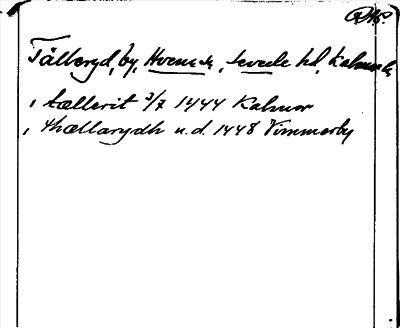 Tälleryd, by, Hvena sn, Sevede hd, Kalmar l.
, tællerit 3/7 1444 Kalmar
, thællarydh u.d. 1448 Vimmerby